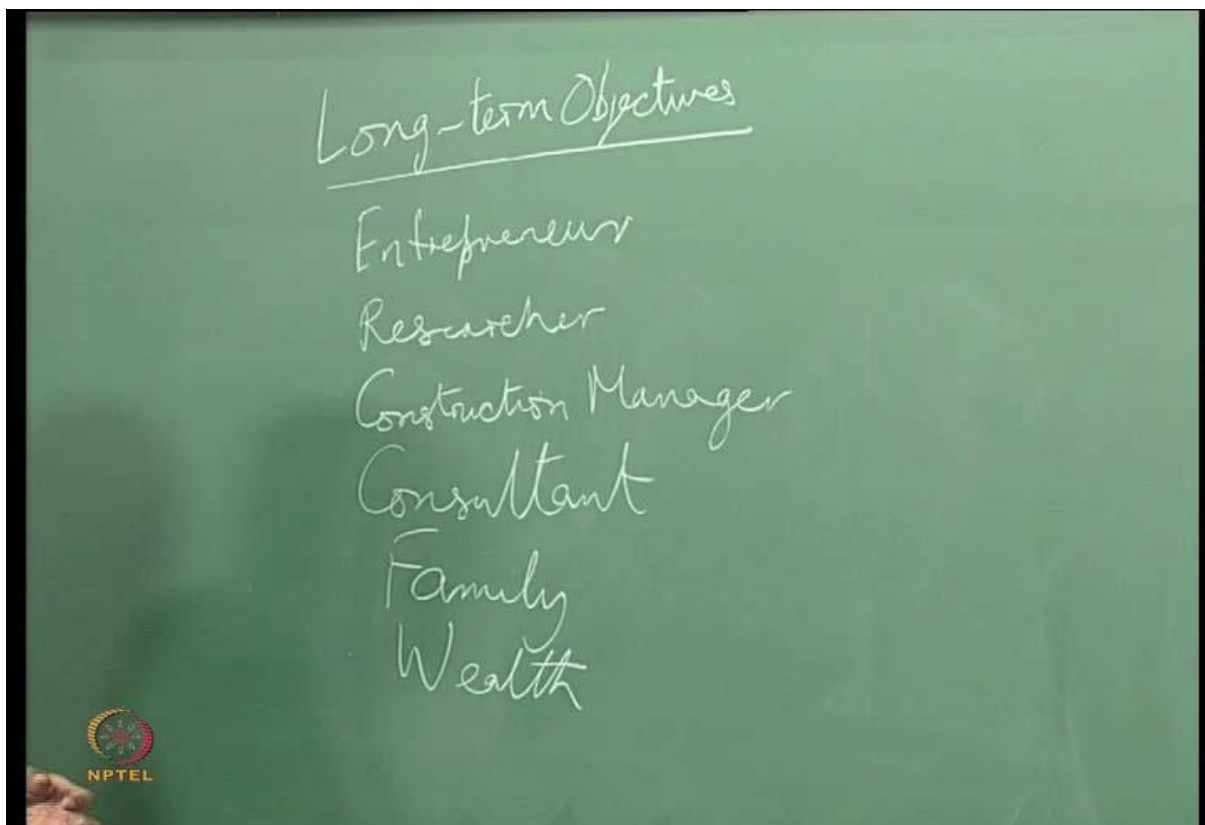 Long-term Objectives
Entrepreneur
Researcher
Construction Manager
Consultant
Family
Wealth
NPTEL